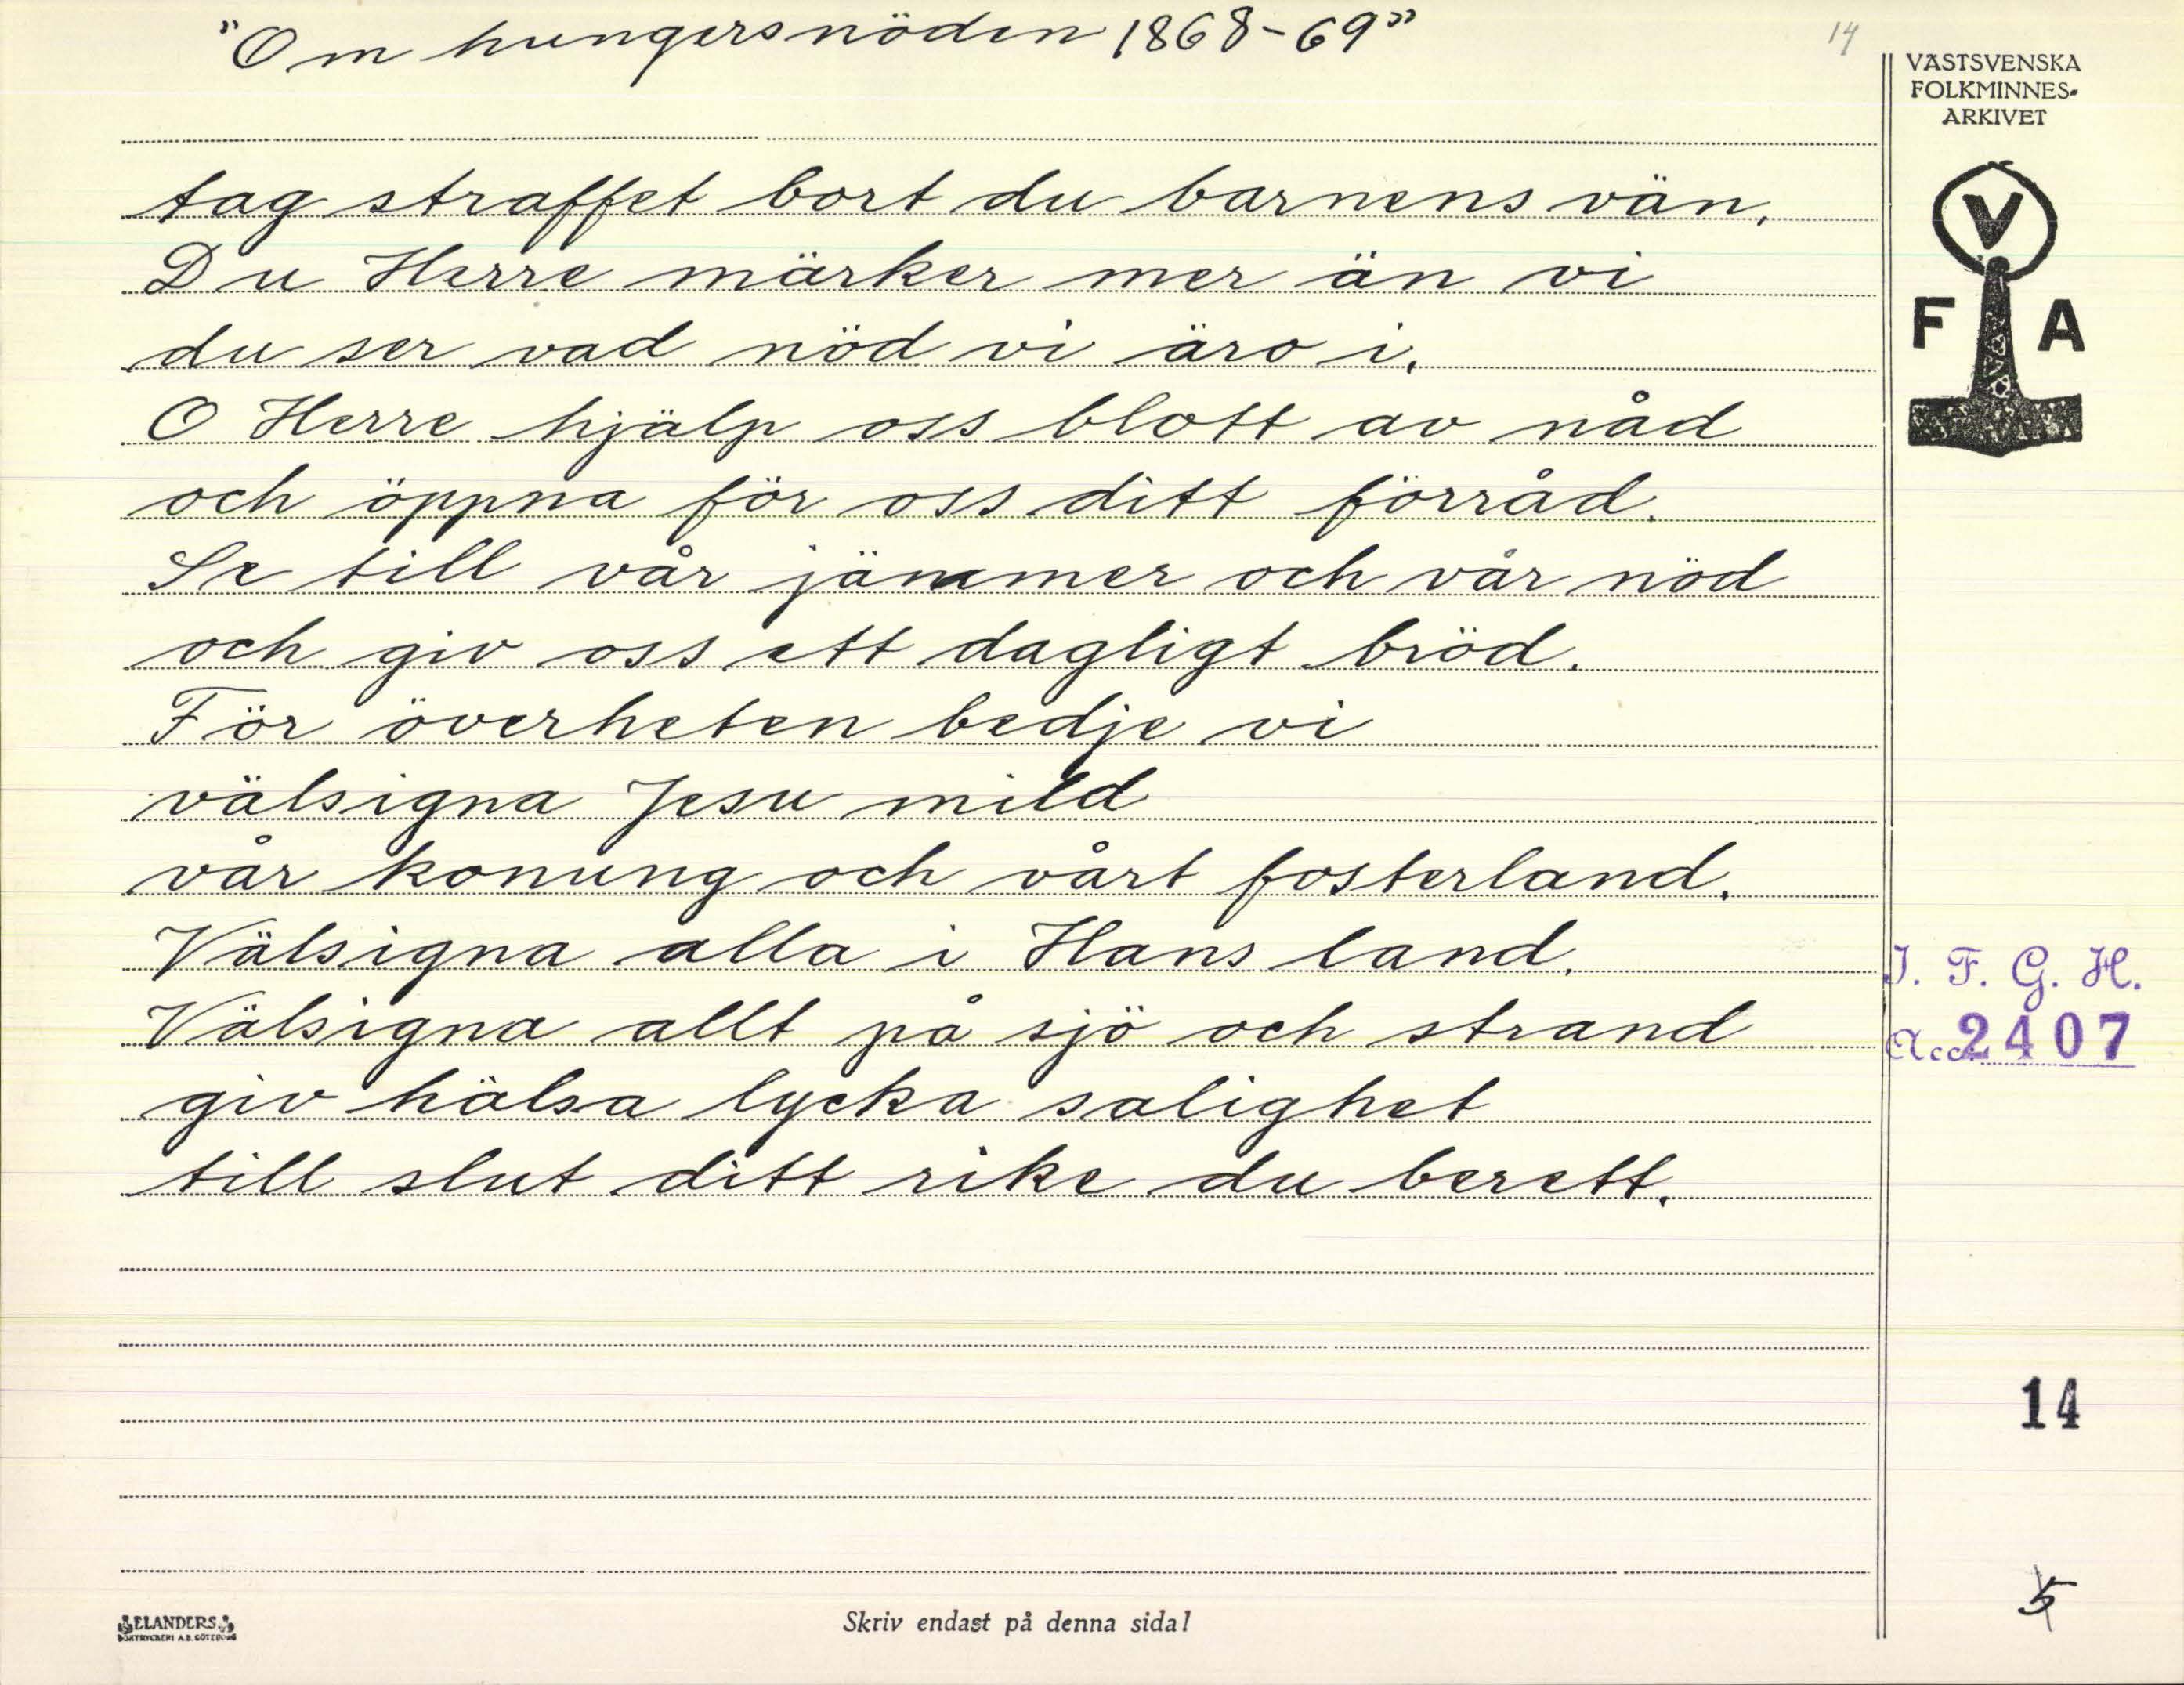 "Om hungersnöden 1868-69"
14
VÄSTSVENSKA
FOLKMINNES-
ARKIVET
V
F A
tag straffet bort du barnens vän.
Du Herre märker mer än vi
du ser vad nöd vi äro i.
O Herre hjälp oss blott av nåd
och öppna för oss ditt förråd.
Se till vår jämmer och vår nöd
och giv oss ett dagligt bröd.
För överheten bedje vi
välsigna Jesu mild
vår konung och vårt fosterland.
Välsigna alla i Hans land.
Välsigna allt på sjö och strand
giv hälsa lycka salighet
till slut ditt rike du berett.
I. F. G. H.
Acc. 2407
14
5
ELANDERS
BOKTRYCKERI A.B. GÖTEBORG
Skriv endast på denna sida!